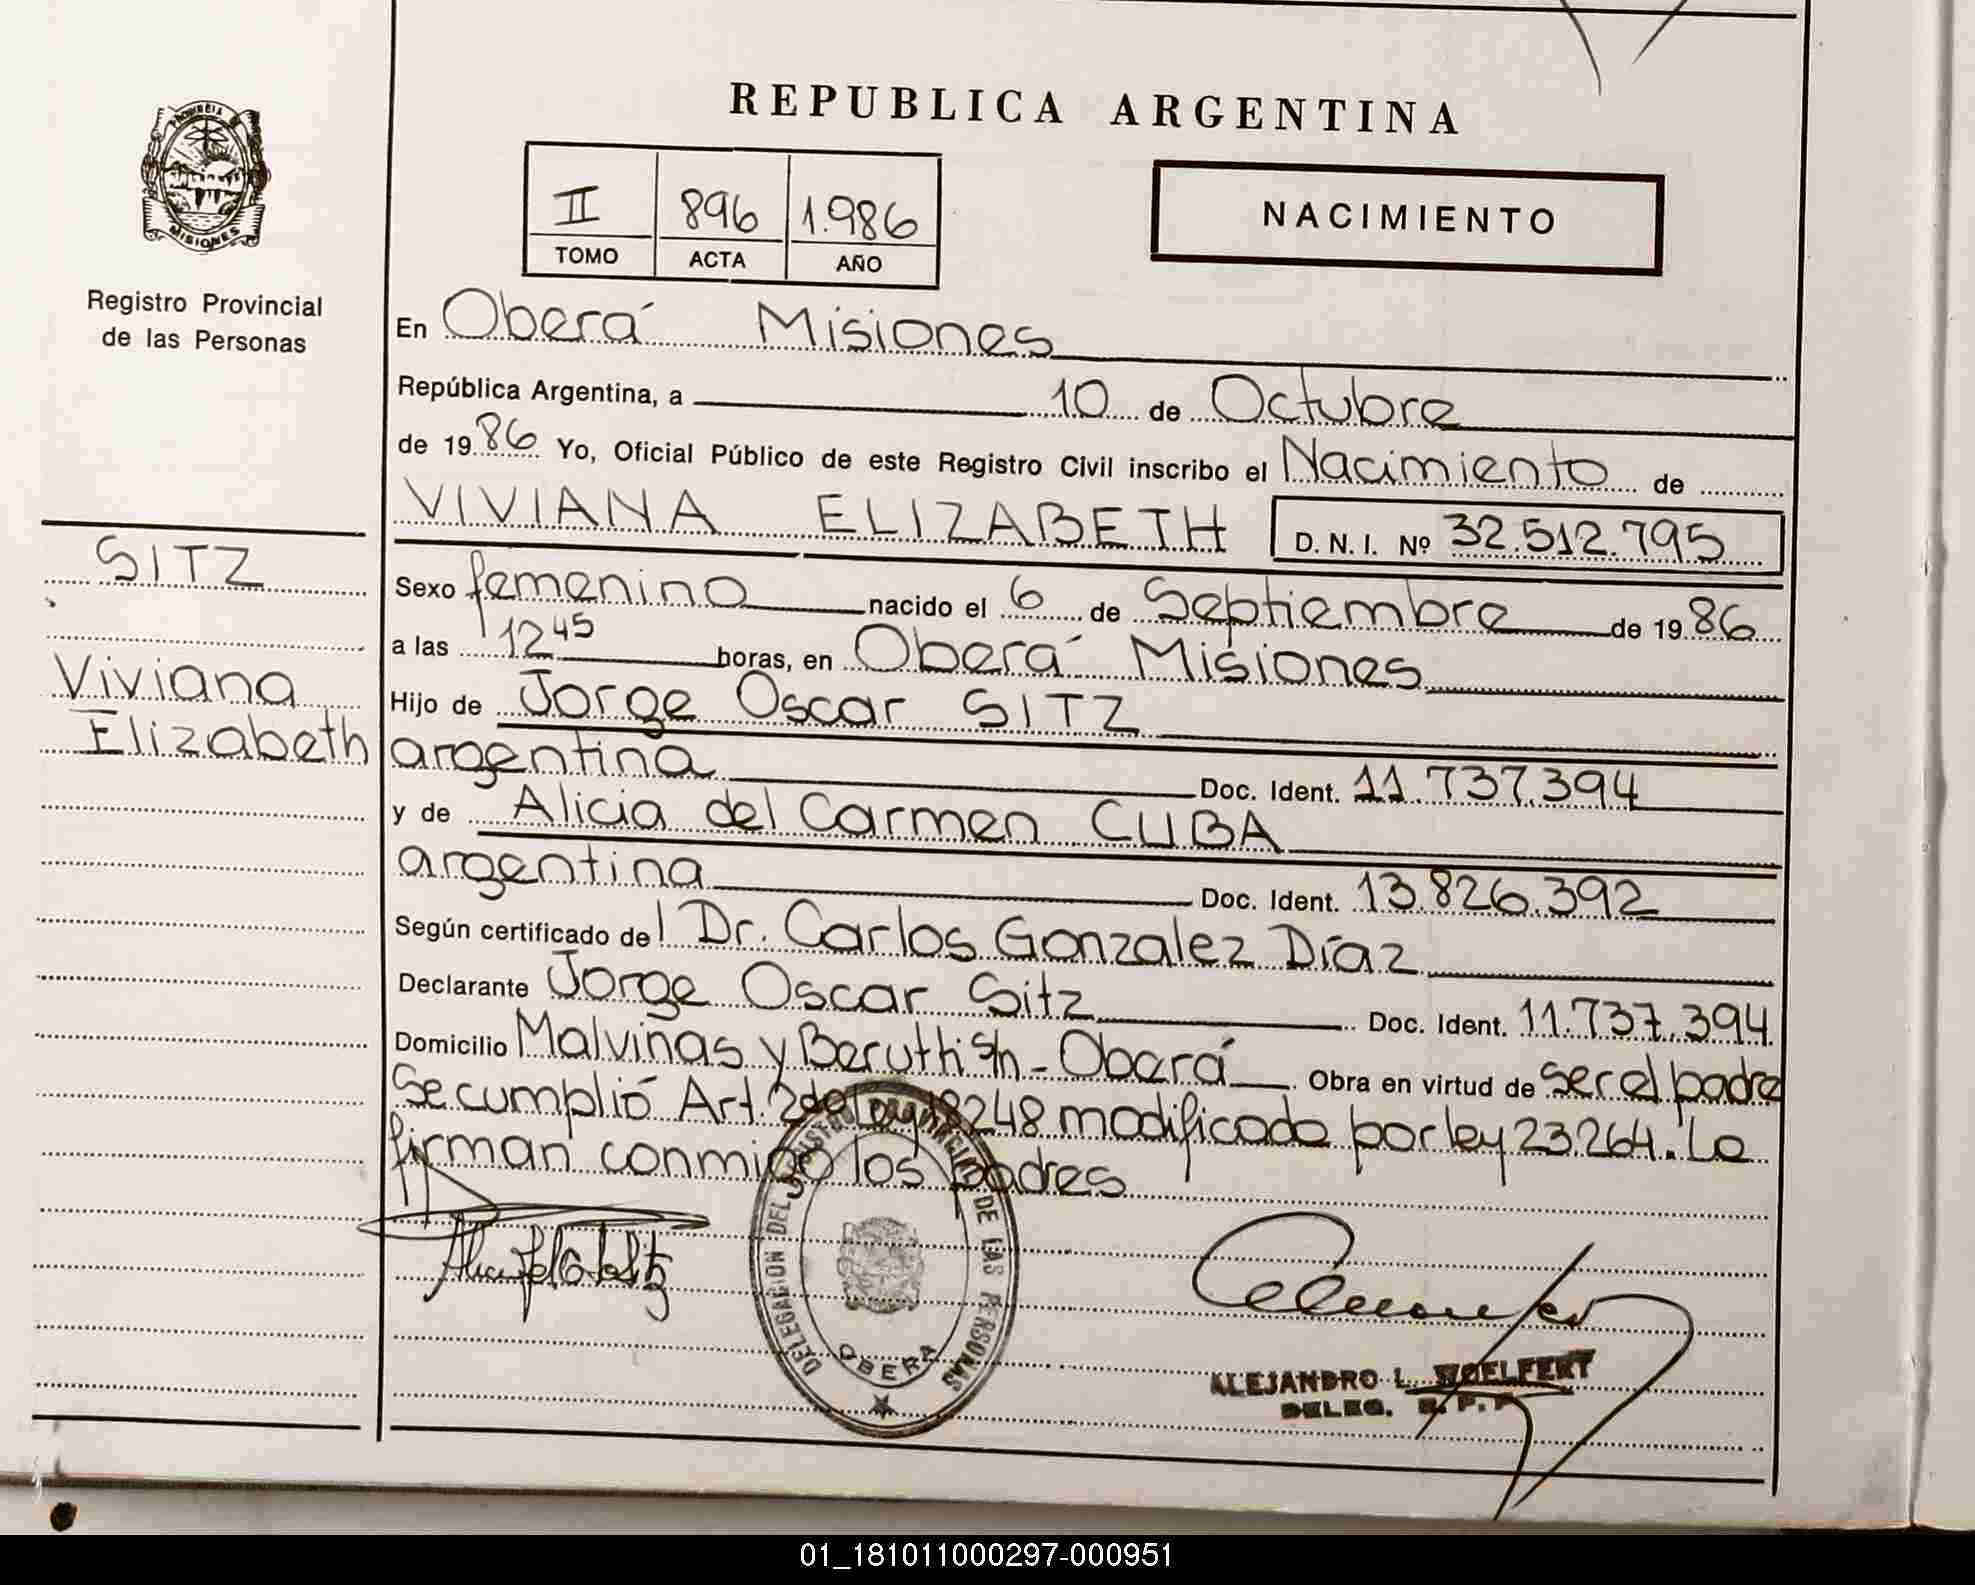 REPUBLICA ARGENTINA
PROVINCIA DE
MISIONES
Registro Provincial
de las Personas
II 896 1.986
TOMO ACTA AÑO
NACIMIENTO
En Oberá Misiones
República Argentina, a 10 de Octubre
de 1986 Yo, Oficial Público de este Registro Civil inscribo el Nacimiento de
VIVIANA ELIZABETH D. N. I. Nº 32.512.795
SITZ
Viviana
Elizabeth
Sexo femenino nacido el 6 de Septiembre de 1986
a las 12 45 horas, en Oberá Misiones
Hijo de Jorge Oscar SITZ
argentina Doc. Ident. 11.737.394
y de Alicia del Carmen CUBA
argentina Doc. Ident. 13.826.392
Según certificado del Dr. Carlos Gonzalez Díaz
Declarante Jorge Oscar Sitz Doc. Ident. 11.737.394
Domicilio Malvinas y Beruthi s/n - Oberá Obra en virtud de ser el padre
Se cumplió Art. 2 del ley 18248 modificado por ley 23.264. Lo
firman conmigo los padres
DELEGACION DEL REGISTRO PROVINCIAL DE LAS PERSONAS
OBERA
ALEJANDRO L. WOELFERT
DELEG. R. P. P.
01_181011000297-000951